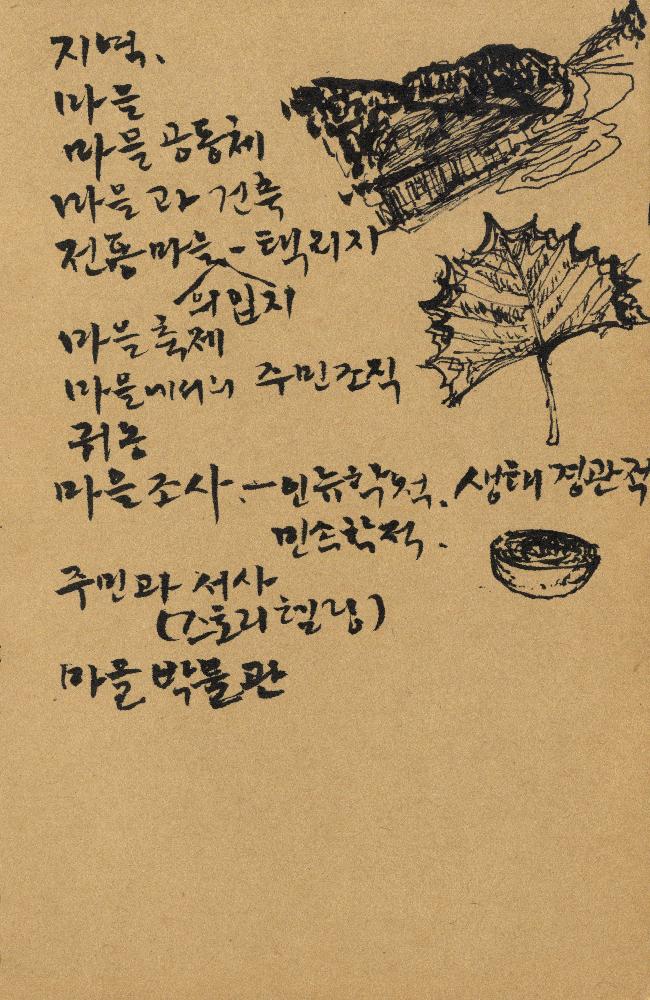 지역.
마을
마을 공동체
마을과 건축
전통마을 - 택리지
의 입지
마을 축제
마을에서의 주민조직
귀농
마을조사. - 인류학적. 생태 경관적
민속학적.
주민과 서사
(스토리텔링)
마을 박물관